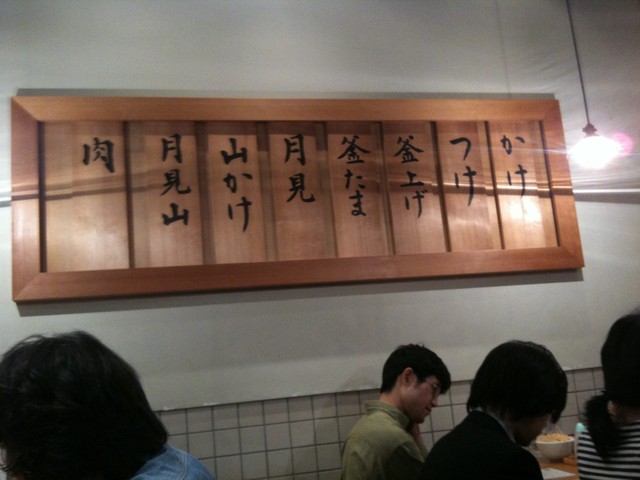 かけ
つけ
釜上げ
釜たま
月見
山かけ
月見山
肉